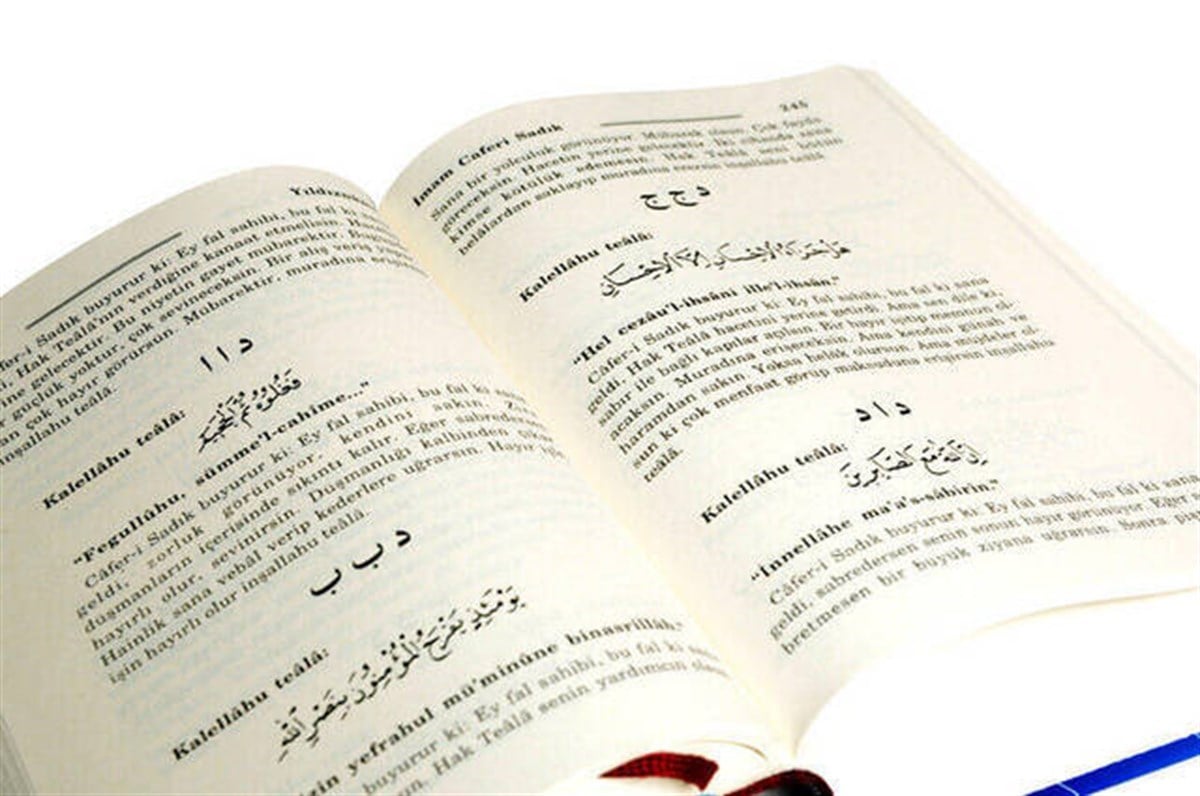 Yıldız
fer-i Sadık buyurur ki: Ey fal sahibi, bu fal ki
Hak Teâlâ'nın verdiğine kanaat etmelisin.
ine gelecektir. Bu niyetin gayet mübarektir.
güçlük yoktur, çok sevineceksin. Bir alış veriş
an çok hayır görürsün. Mübarektir, muradına
nşallahu teâlâ.
د ا ا
Kalellâhu teâlâ:
"Fegullûhu, sümme'l-cahime..."
Câfer-i Sadık buyurur ki: Ey fal sahibi, bu fal ki
geldi, zorluk görünüyor, kendini sakın.
düşmanların içerisinde sıkıntı kalır. Eğer sabreder
hayırlı olur, sevinirsin. Düşmanlığı kalbinden
Hainlik sana vebâl verip kederlere uğrarsın. Hayır
işin hayırlı olur inşallahu teâlâ
د ب ب
Kalellâhu teâlâ:
يَوْمَئِذٍ يَفْرَحُ الْمُؤْمِنُونَ بِنَصْرِ اللّٰهِ
izin yefrahul mü'minûne binasrillâh."
buyurur ki: Ey fal sahibi, bu fal ki
Hak Teâlâ senin yardımcın
İmam Caferi Sadık
245
Sana bir yolculuk görünüyor. Mübarek olsun. Çok fayda
göreceksin. Hacetin yerine gelecektir. İki cihanda sana
kimse kötülük edemesin. Hak Teâlâ seni bütün
belâlardan saklayıp muradına eresin inşallahu teâlâ
د ج ج
Kalellâhu teâlâ:
هَلْ جَزَاءُ الْاِحْسَانِ اِلَّا الْاِحْسَانُ
"Hel cezâu'l-ihsâni ille'l-ihsân."
Câfer-i Sadık buyurur ki: Ey fal sahibi, bu fal ki sana
geldi, Hak Teâlâ hacetini yerine getirdi. Ama sen dile ki
sabır ile bağlı kapılar açılsın. Bir hayır
acaksın. Muradına erişeceksin. Ama kendini günah ve
haramdan sakın. Yoksa helâk olursun.
sun ki çok menfaat görüp maksadına erişirsin inşallahu
teâlâ.
د ا د
Kalellâhu teâlâ:
"İnnellâhe ma'a's-sâbirîn."
Câfer-i Sadık buyurur ki: Ey fal sahibi, bu fal ki sana
geldi, sabredersen senin sonun hayır görünüyor. Eğer
bretmesen bir büyük ziyana uğrarsın. Sonra